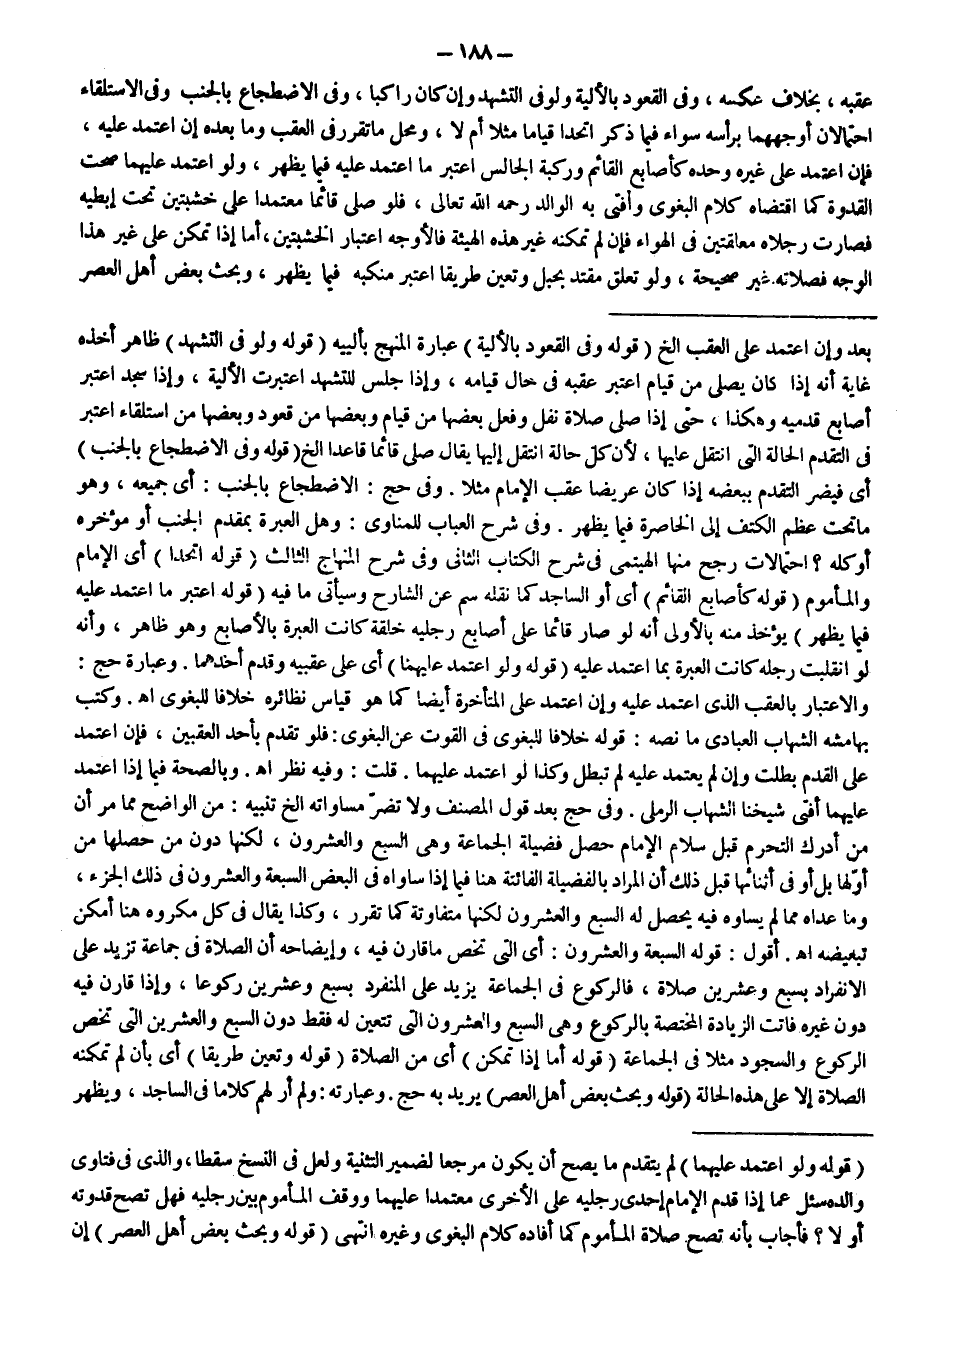 – ١٨٨ –
عقبه ، بخلاف عكسه ، وفى القعود بالألية ولوفى التشهد وإن كان راكبا ، وفى الاضطجاع بالجنب وفى الاستلقاء
احتمالان أوجههما برأسه سواء فيما ذكر اتحدا قياما مثلا أم لا ، ومحل ماتقرر فى العقب وما بعده إن اعتمد عليه ،
فإن اعتمد على غيره وحده كأصابع القائم وركبة الجالس اعتبر ما اعتمد عليه فيما يظهر ، ولو اعتمد عليهما صحت
القدوة كما اقتضاه كلام البغوى وأفتى به الوالد رحمه الله تعالى ، فلو صلى قائما معتمدا على خشبتين تحت إبطيه
فصارت رجلاه معاقتين فى الهواء فإن لم تمكنه غير هذه الهيئة فالأوجه اعتبار الخشبتين،أما إذا تمكن على غير هذا
الوجه فصلاته غير صحيحة ، ولو تعلق مقتد بحبل وتعين طريقا اعتبر منكبه فيما يظهر ، وبحث بعض أهل العصر
بعد وإن اعتمد على العقب الخ ( قوله وفى القعود بالألية ) عبارة المنهج بألييه ( قوله ولو فى التشهد ) ظاهر أخذه
غاية أنه إذا كان يصلى من قيام اعتبر عقبه فى حال قيامه ، وإذا جلس للتشهد اعتبرت الألية ، وإذا سجد اعتبر
أصابع قدميه وهكذا ، حتى إذا صلى صلاة نفل وفعل بعضها من قيام وبعضها من قعود وبعضها من استلقاء اعتبر
فى التقدم الحالة التى انتقل عايها ، لأن كلّ حالة انتقل إليها يقال صلى قائما قاعدا الخ(قوله وفى الاضطجاع بالجنب )
أى فيضر التقدم ببعضه إذا كان عريضا عقب الإمام مثلا . وفى حج : الاضطجاع بالجنب : أى جميعه ، وهو
ماتحت عظم الكتف إلى الخاصرة فيما يظهر . وفى شرح العباب للمناوى : وهل العبرة بمقدم الجنب أو مؤخره
أو كله ؟ احتمالات رجح منها الهيتمى فى شرح الكتاب الثانى وفى شرح المنهاج الثالث ( قوله اتحدا ) أى الإمام
والمـأموم ( قوله كأصابع القائم ) أى أو الساجد كما نقله سم عن الشارح وسيأتى ما فيه ( قوله اعتبر ما اعتمد عليه
فيما يظهر ) يؤخذ منه بالأولى أنه لو صار قائما على أصابع رجليه خلقة كانت العبرة بالأصابع وهو ظاهر ، وأنه
لو انقلبت رجله كانت العبرة بما اعتمد عليه ( قوله ولو اعتمد عايهما ) أى على عقبيه وقدم أحدهما . وعبارة حج :
والاعتبار بالعقب الذى اعتمد عليه وإن اعتمد على المتأخرة أيضا كما هو قياس نظائره خلافا للبغوى اه . وكتب
بهامشه الشهاب العبادى ما نصه : قوله خلافا للبغوى فى القوت عن البغوى : فلو تقدم بأحد العقبين ، فإن اعتمد
على القدم بطلت وإن لم يعتمد عليه لم تبطل وكذا لو اعتمد عليهما . قلت : وفيه نظر اه . وبالصحة فيما إذا اعتمد
عليهما أفتى شيخنا الشهاب الرملى . وفى حج بعد قول المصنف ولا تضرّ مساواته الخ تنبيه : من الواضح مما مر أن
من أدرك التحرم قبل سلام الإمام حصل فضيلة الجماعة وهى السبع والعشرون ، لكنها دون من حصلها من
أوّلها بل أو فى أثنائها قبل ذلك أن المراد بالفضيلة الفائتة هنا فيما إذا ساواه فى البعض السبعة والعشرون فى ذلك الجزء ،
وما عداه مما لم يساوه فيه يحصل له السبع والعشرون لكنها متفاوتة كما تقرر ، وكذا يقال فى كل مكروه هنا أمكن
تبعيضه اه . أقول : قوله السبعة والعشرون : أى التى تخص ماقارن فيه ، وإيضاحه أن الصلاة فى جماعة تزيد على
الانفراد بسبع وعشرين صلاة ، فالركوع فى الجماعة يزيد على المنفرد بسبع وعشرين ركوعا ، وإذا قارن فيه
دون غيره فاتت الزيادة المختصة بالركوع وهى السبع والعشرون التى تتعين له فقط دون السبع والعشرين التى تخص
الركوع والسجود مثلا فى الجماعة ( قوله أما إذا تمكن ) أى من الصلاة ( قوله وتعين طريقا ) أى بأن لم تمكنه
الصلاة إلا على هذه الحالة (قوله وبحث بعض أهل العصر) يريد به حج . وعبارته : ولم أر لهم كلاما فى الساجد ، ويظهر
( قوله ولو اعتمد عليهما ) لم يتقدم ما يصح أن يكون مرجعا لضمير التثنية ولعل فى النسخ سقطا، والذى فى فتاوى
والده سئل عما إذا قدم الإمام إحدى رجليه على الأخرى معتمدا عليهما ووقف المـأموم بين رجليه فهل تصح قدوته
أو لا ؟ فأجاب بأنه تصح صلاة المـأموم كما أفاده كلام البغوى وغيره انتهى ( قوله وبحث بعض أهل العصر ) إن